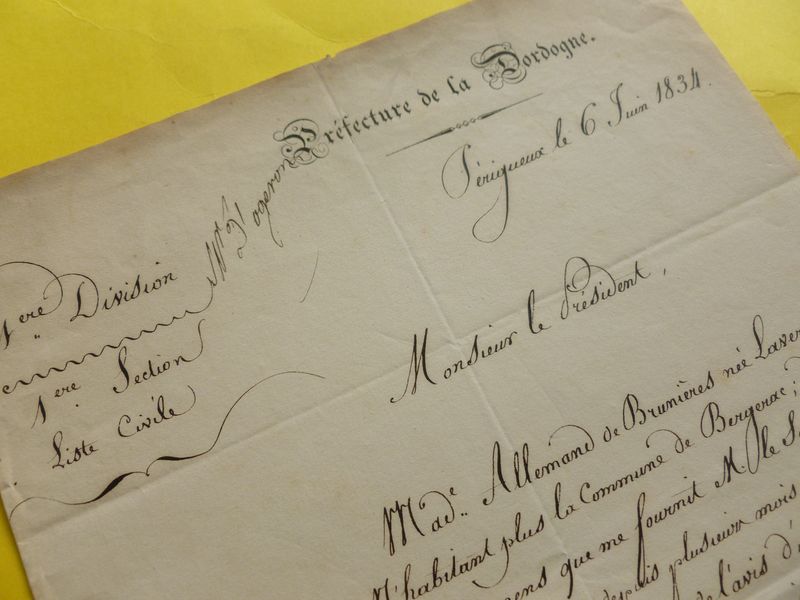 Préfecture de la Dordogne.
Périgueux le 6 Juin 1834.
1ere Division
1ere Section
Liste Civile
Monsieur le Président,
Made. Allemand de Brunières née Laver
N'habitant plus la Commune de Bergerac;
que me fournit M. le S
depuis plusieurs mois
de l'avis d'